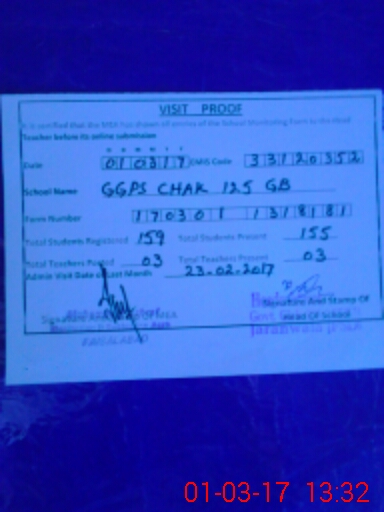 VISIT PROOF
It is certified that the MEA has shown all entries of the School Monitoring Form to the Head
Teacher before its online submission
Date 010317 EMIS Code 33120352
School Name GGPS CHAK 125 GB
Form Number 170301 1318181
Total Students Registered 159 Total Students Present 155
Total Teachers Posted 03 Total Teachers Present 03
Admin Visit Date of Last Month 23.02.2017
Signature And Stamp Of
Signature MEA Head Of School
Govt
Jaranwala
FAISALABAD
01-03-17 13:32